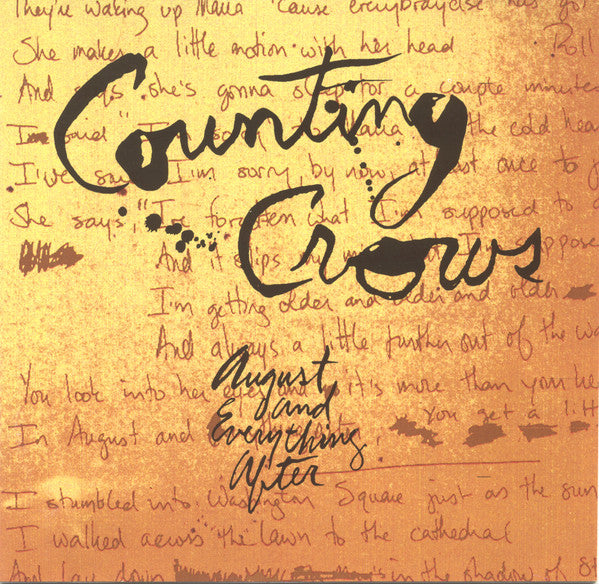 They're waking up Maria 'cause everybody else has got
She makes a little motion with her head Roll
And says she's gonna sleep for a couple minutes
I've said I'm sorry Maria the cold hea
I've say I'm sorry by now, at least once to j
She says, "I've forgotten what I'm supposed to
And it slips my mind suppose
I'm getting older and older and older
And always a little further out of the wa
You look into her eyes and it's more than you he
In August and You get a litt
I stumbled into Washington Square just as the sun
I walked across the lawn to the cathedral
And lay down in the shadow of S
Counting
Crows
August
and
Everything
After